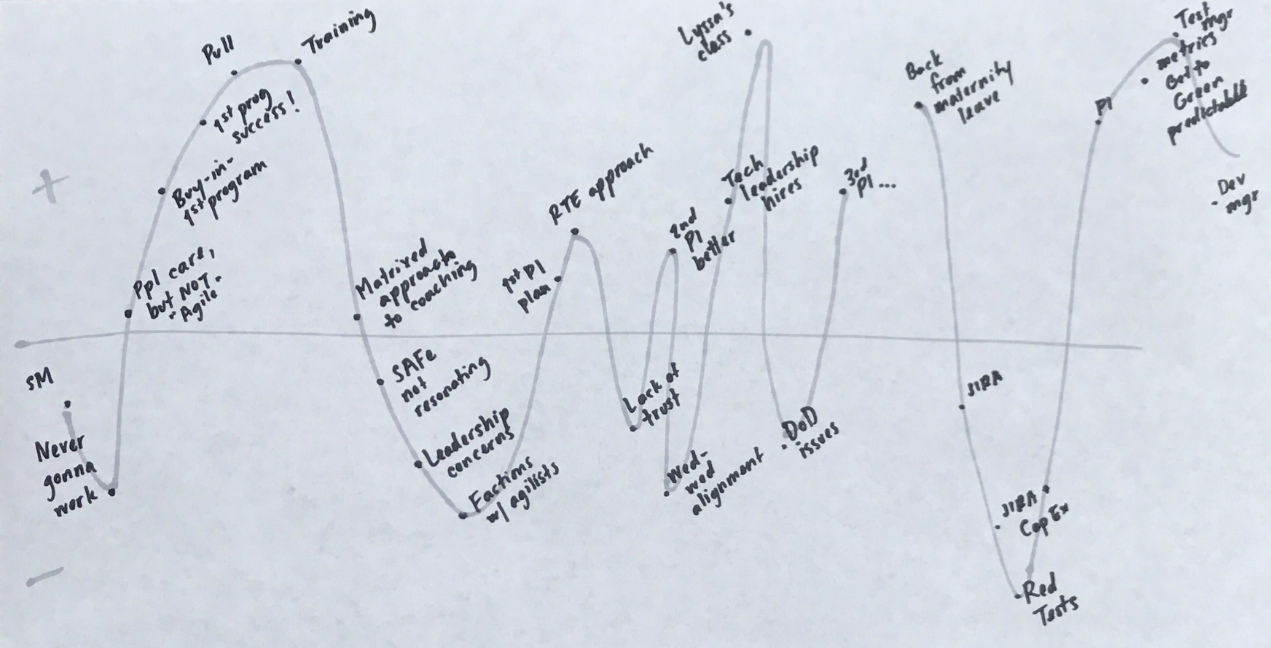 SM
Never
gonna
work
Ppl care,
but NOT
"Agile"
Buy-in-
1st program
1st prog
success!
Pull
Training
Matrixed
approach
to coaching
SAFe
not
resonating
Leadership
concerns
Factions
w/ agilists
1st PI
plan
RTE approach
Lack of
trust
2nd
PI
better
Wed-
wed
alignment
Tech
leadership
hires
Lyssa's
class
DoD
issues
3rd
PI ...
Back
from
maternity
leave
JIRA
JIRA
CapEx
Red
Tests
PI
Test mgr
metrics
Got to
Green
predictable
Dev
mgr
+
-